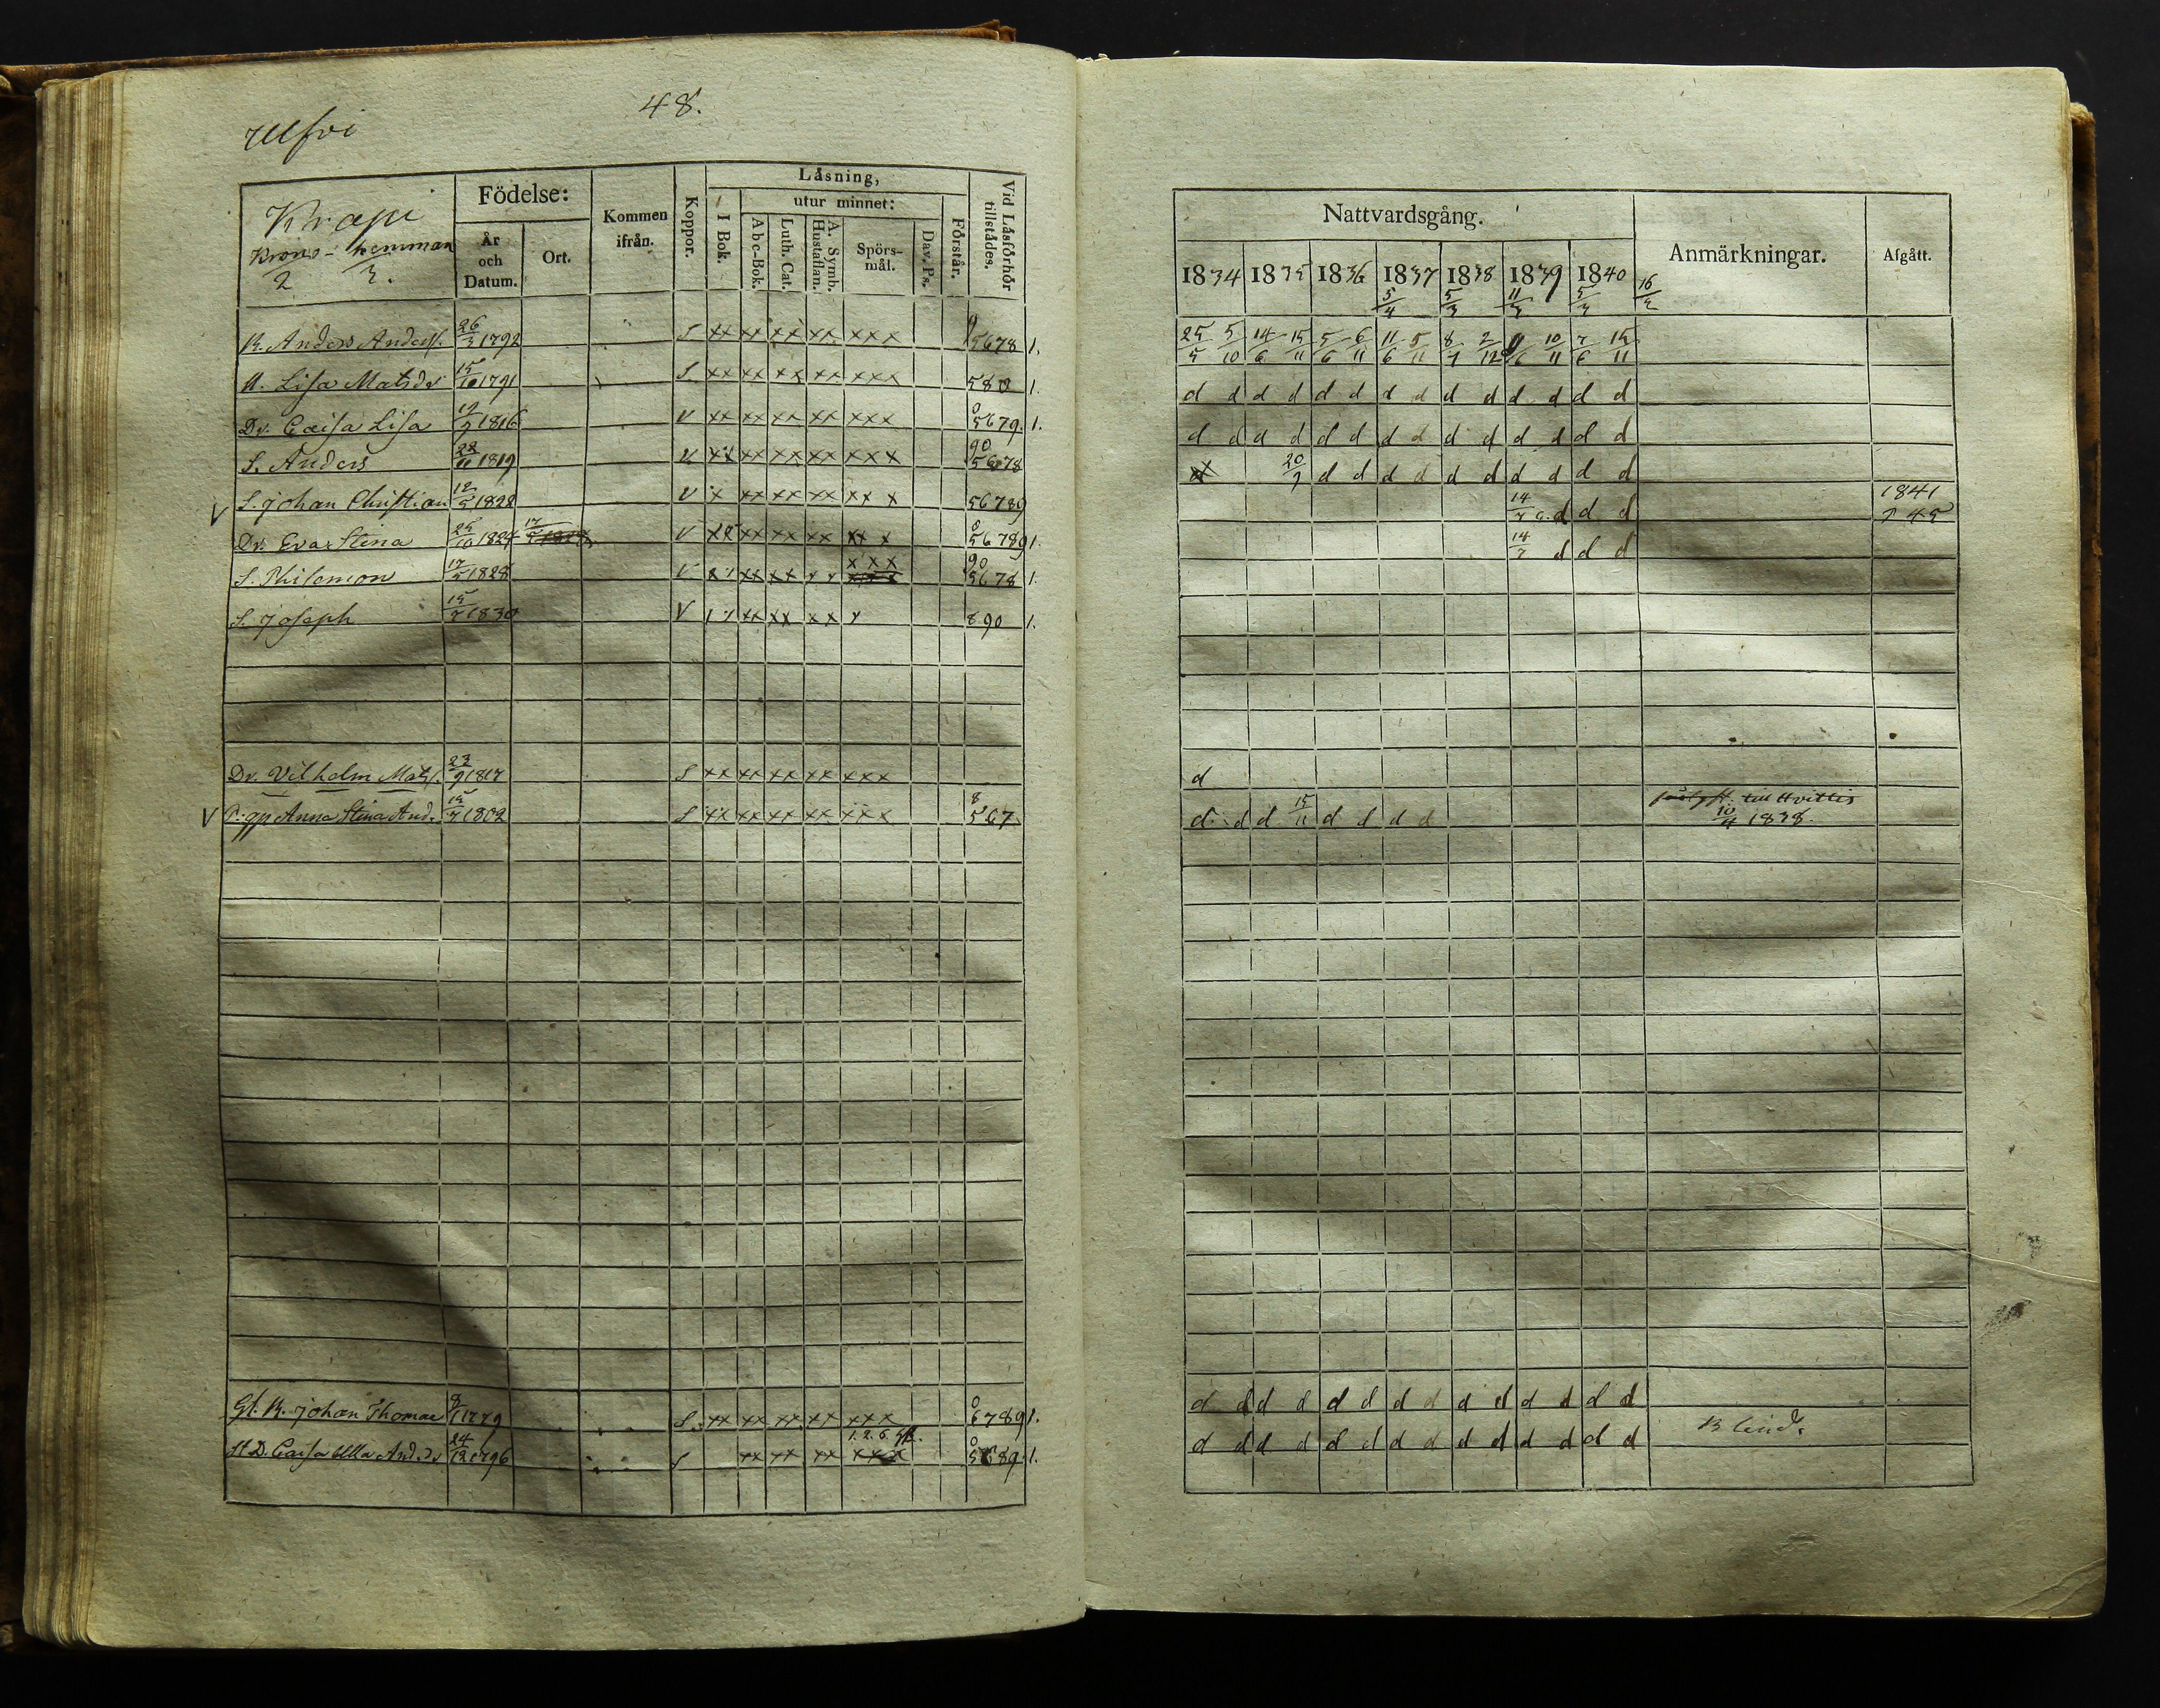 48.
Ulfvi
Krapi
Krono-hemman
2 3.
Födelse:
År och Datum.
Ort.
Kommen ifrån.
Koppor.
Läsning,
I Bok.
utur minnet:
Abc-Bok.
Luth. Cat.
A. Symb. Hustaflan.
Spörs-mål.
Dav. Ps.
Förstår.
Vid Läsförhör tillstädes.
B. Anders Anderss. 26/3 1792 S xx xx xx xx xxx 9 5678 1.
H. Lisa Matsdr 15/10 1791 S. xx xx xx xx xxx 580 1.
Dr. Caisa Lisa 19/9 1816 V xx xx xx xx xxx 0 5679. 1.
S. Anders 28/11 1819 V. xx xx xx xx xxx 90 5678
V S. Johan Christian 12/5 1822 V x xx xx xx xx x 56789
Dr. Eva Stina 25/10 1824 17/5 1828 V xx xx xx xx xx x 0 56789 1.
S. Philemon 17/5 1828 V xx xx xx xx xxx xxx 90 5678 1.
S. Joseph 15/7 1830 V xx xx xx x 890 1.
Dr. Vilhelm Mats. 23/9 1817 S xx xx xx xx xxx
V P. gp Anna Stina And. 15/7 1802 S xx xx xx xx xxx 8 567
Gl. B. Johan Thomae 8/1 1779 S. xx xx xx xx xxx 0 6789 1.
1. 2. 5.
St D. Caisa Ulla And.dr 24/12 1796 S xx xx xx xxx 0 5689. 1.
Nattvardsgång.
Anmärkningar.
Afgått.
1834 1835 1836 1837 1838 1839 1840
5/4 5/3 11/3 5/3 16/2
25/5 5/10 14/6 15/11 5/6 6/11 11/6 5/11 8/7 2/12 9/6 10/11 7/6 15/11
d d d d d d d d d d d d d d
d d d d d d d d d d d d d d
20/9 d d d d d d d d d d
14/7 d d d 1841
45
14/7 d d d
d
d. d d 15/11 d d d d till Hvittis
10/4 1838.
d d d d d d d d d d d d d d
d d d d d d d d d d d d d d Blind.